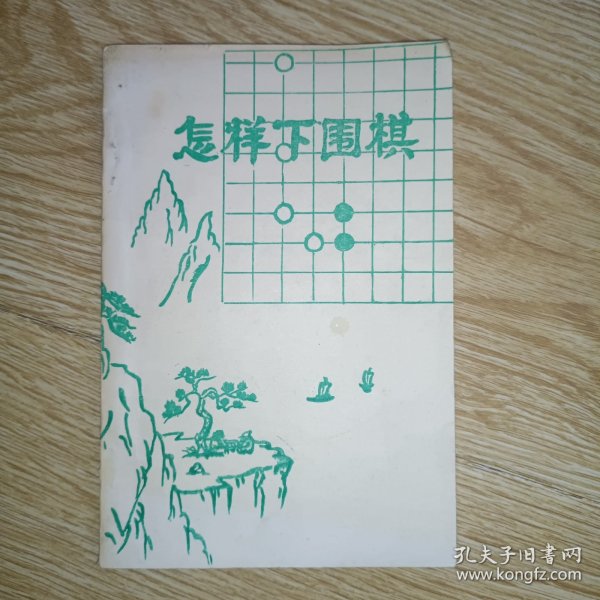 怎样下围棋
孔夫子旧書网
www.kongfz.com